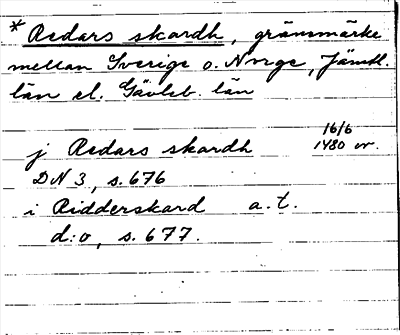 * Redars skardh, gränsmärke
mellan Sverige o. Norge, Jämtl.
län el. Gävleb. län
j Redars skardh 16/6 1480 or.
DN 3, s. 676
i Ridderskard a. t.
d:o, s. 677.